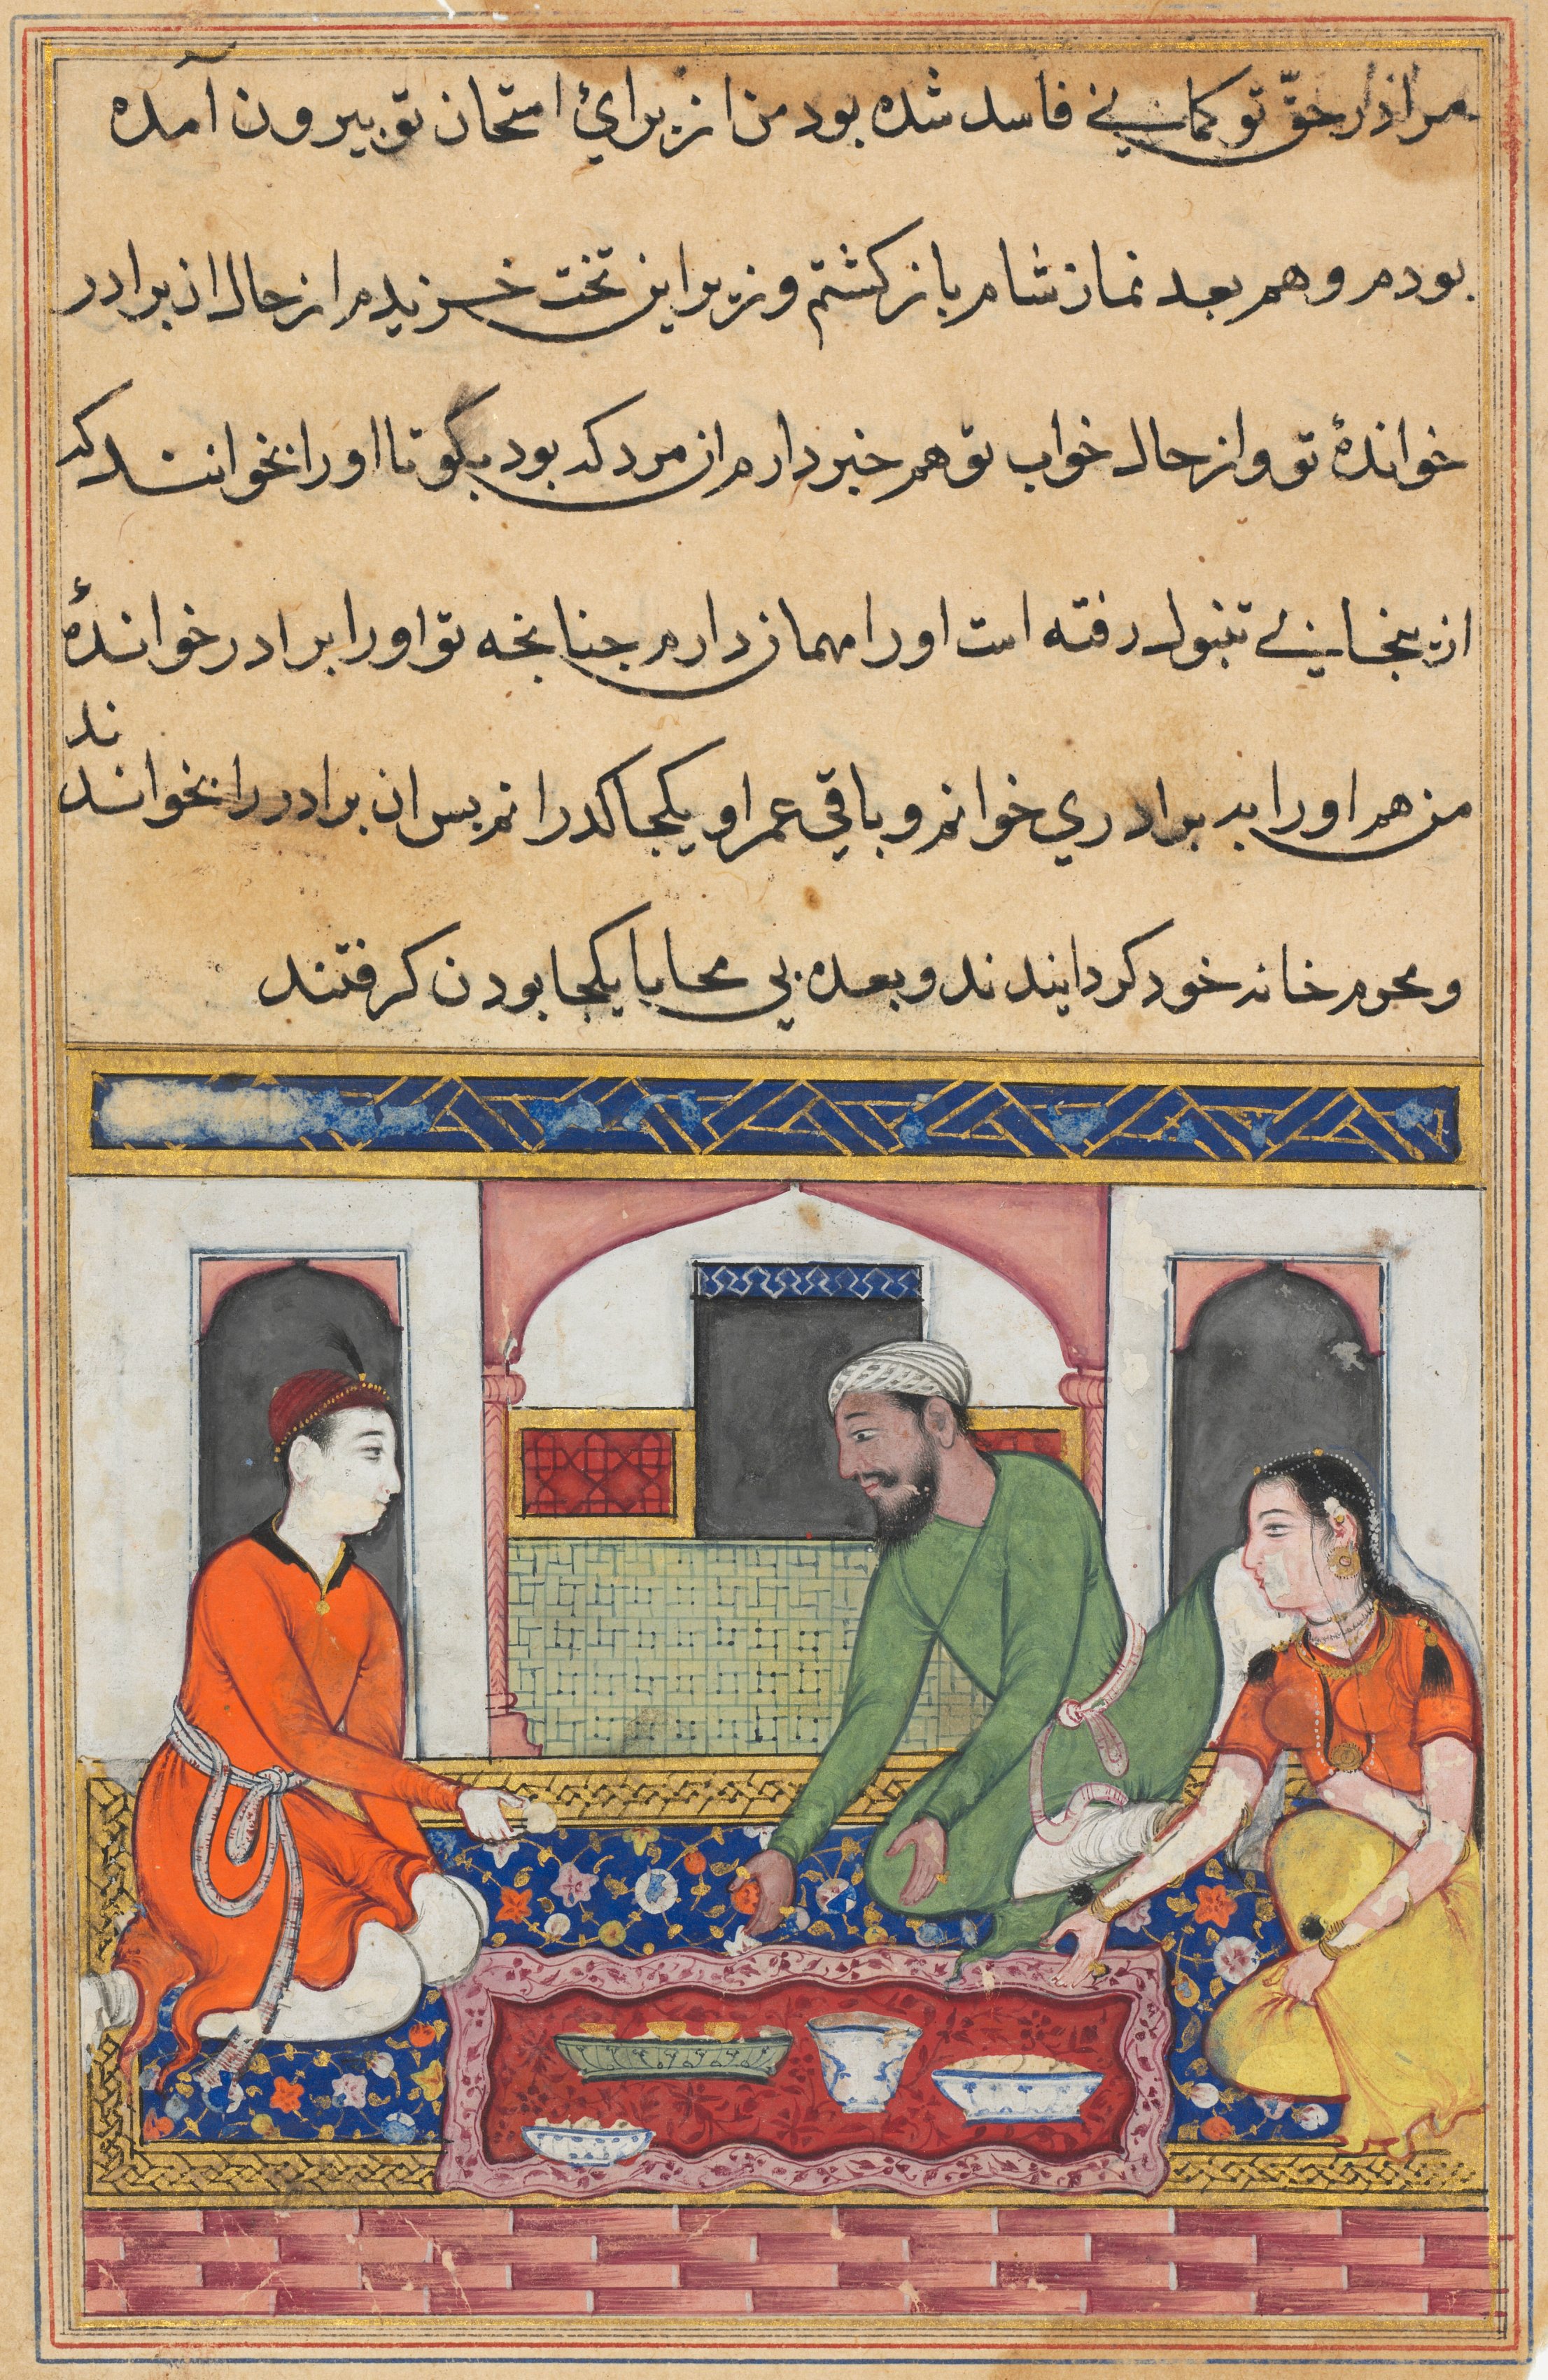 مرا در حقّ تو کماني فاسد شده بود من از براي امتحان تو بیرون آمده
بودم و هم بعد نماز شام باز کشتم و زیر این تخت خزیدم از حال ان برادر
خواندهٔ تو و از حال خواب تو هم خبر دارم ان مرد که بود بکو تا اورا بخوانند که
از بخانهٔ تنبول رفته است اورا مهمان دارم جنانجه تو اورا برادر خواندهٔ
من هم اورا به برادري خوانم و باقي عمر او یکجا کدرانم بس ان برادر را بخوانند
ند
و محرم خانه خود کردانیدند و بعده بي محابا یکجا بودن کرفتند